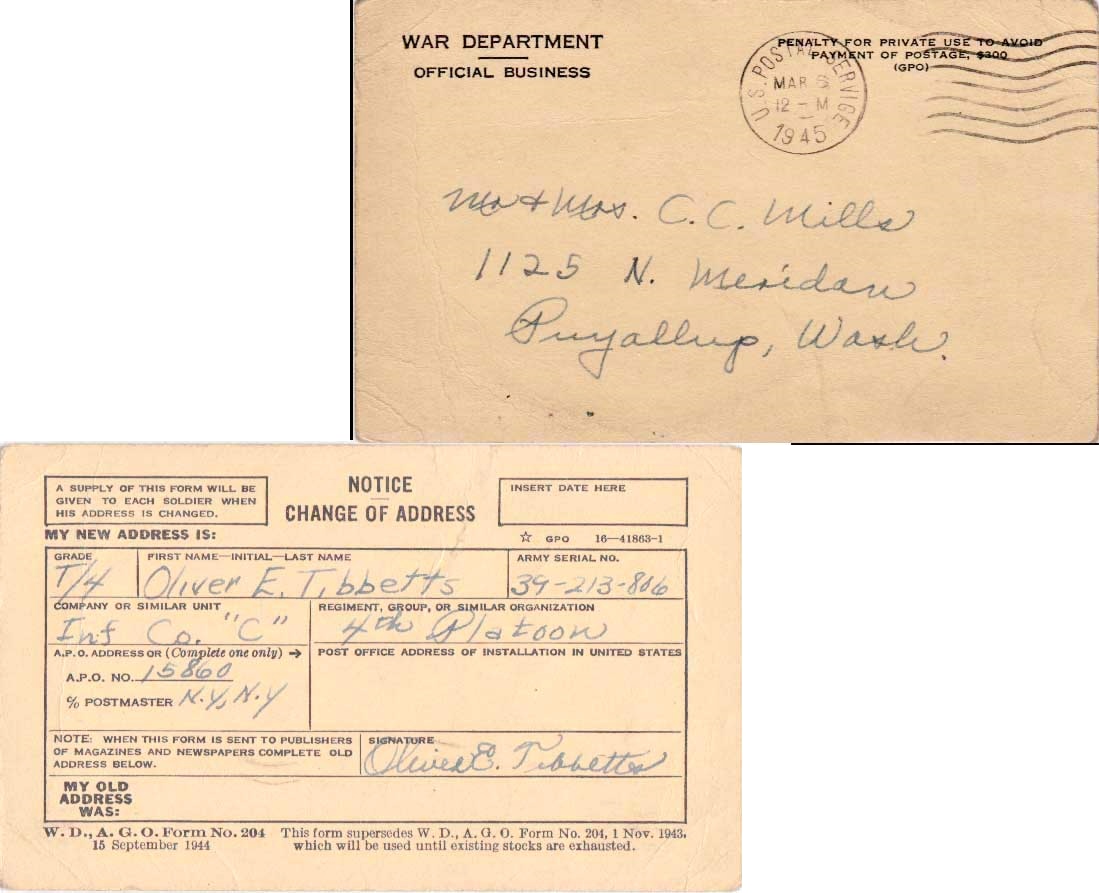 WAR DEPARTMENT
OFFICIAL BUSINESS
PENALTY FOR PRIVATE USE TO AVOID
PAYMENT OF POSTAGE, $300
(GPO)
U.S. POSTAL SERVICE
MAR 6
12 - M
1945
Mr & Mrs. C. C. Mills
1125 N. Meridan
Puyallup, Wash.
A SUPPLY OF THIS FORM WILL BE
GIVEN TO EACH SOLDIER WHEN
HIS ADDRESS IS CHANGED.
NOTICE
CHANGE OF ADDRESS
INSERT DATE HERE
MY NEW ADDRESS IS:
☆ GPO 16—41863-1
GRADE FIRST NAME—INITIAL—LAST NAME ARMY SERIAL NO.
T/4 Oliver E. Tibbetts 39-213-806
COMPANY OR SIMILAR UNIT REGIMENT, GROUP, OR SIMILAR ORGANIZATION
Inf Co. "C" 4th Platoon
A.P.O. ADDRESS OR (Complete one only) → POST OFFICE ADDRESS OF INSTALLATION IN UNITED STATES
A.P.O. NO. 15860
℅ POSTMASTER N.Y., N.Y
NOTE: WHEN THIS FORM IS SENT TO PUBLISHERS
OF MAGAZINES AND NEWSPAPERS COMPLETE OLD
ADDRESS BELOW.
SIGNATURE
Oliver E. Tibbetts
MY OLD
ADDRESS
WAS:
W. D., A. G. O. Form No. 204
15 September 1944
This form supersedes W. D., A. G. O. Form No. 204, 1 Nov. 1943,
which will be used until existing stocks are exhausted.